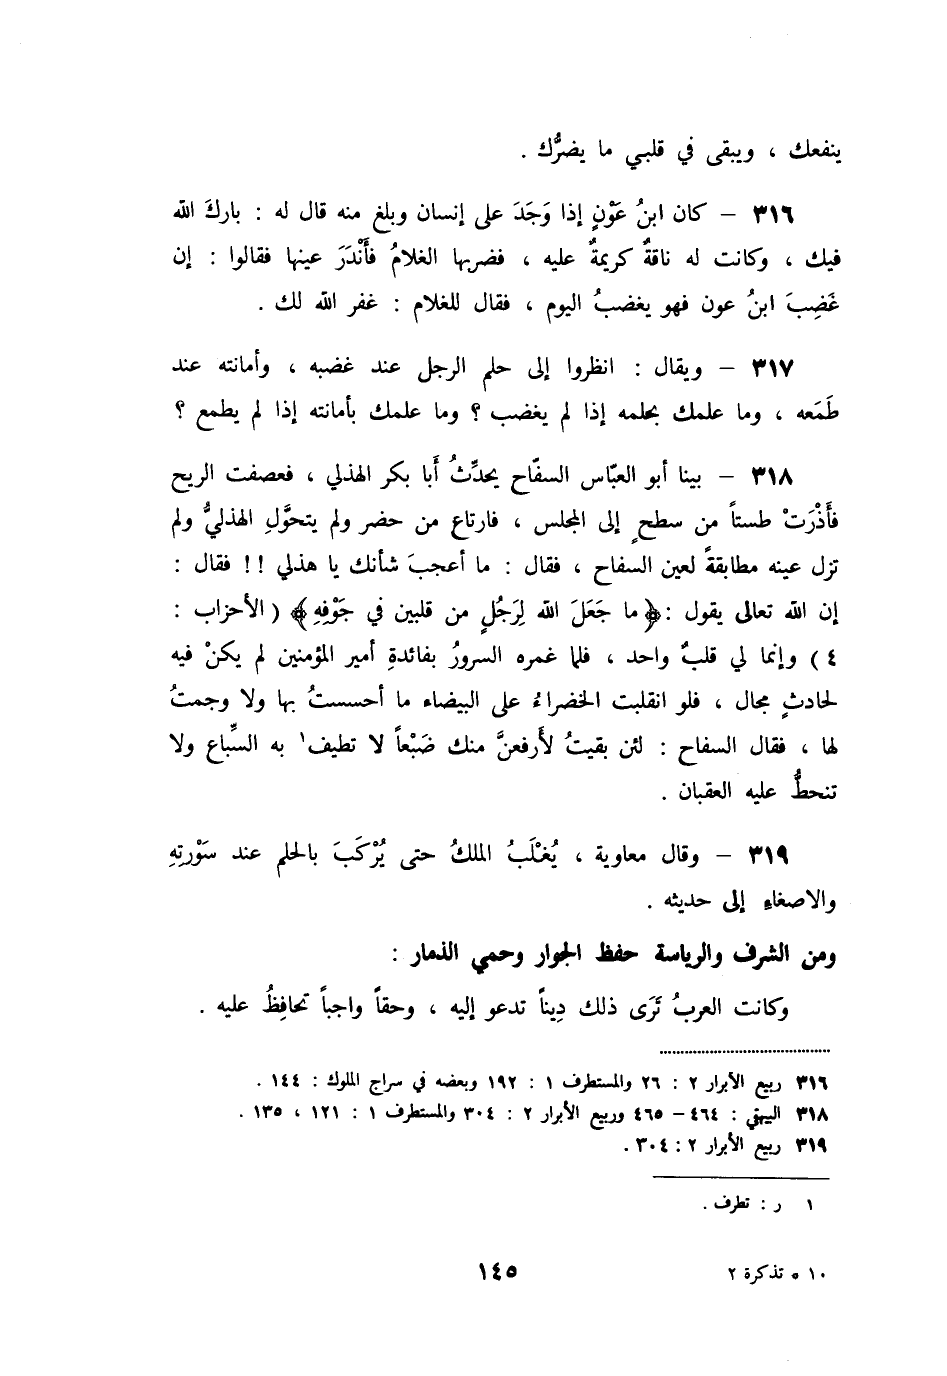 ينفعك ، ويبقى في قلبي ما يضرُّك .
٣١٦ – كان ابنُ عَوْنٍ إذا وَجَدَ على إنسان وبلغ منه قال له : باركَ الله
فيك ، وكانت له ناقةٌ كريمةٌ عليه ، فضربها الغلامُ فأَنْدَرَ عينها فقالوا : إن
غَضِبَ ابنُ عون فهو يغضبُ اليوم ، فقال للغلام : غفر الله لك .
٣١٧ – ويقال : انظروا إلى حلم الرجل عند غضبه ، وأمانته عند
طَمَعه ، وما علمك بحلمه إذا لم يغضب ؟ وما علمك بأمانته إذا لم يطمع ؟
٣١٨ – بينا أبو العبّاس السفّاح يحدِّثُ أَبا بكر الهذلي ، فعصفت الريح
فأَذْرَتْ طستاً من سطحٍ إلى المجلس ، فارتاع من حضر ولم يتحوَّلِ الهذليُّ ولم
تزل عينه مطابقةً لعين السفاح ، فقال : ما أعجبَ شأنك يا هذلي !! فقال :
إن الله تعالى يقول : ﴿ما جَعَلَ الله لِرَجُلٍ من قلبين في جَوْفِهِ﴾ (الأحزاب :
٤) وإنما لي قلبٌ واحد ، فلما غمره السرورُ بفائدةِ أمير المؤمنين لم يكنْ فيه
لحادثٍ مجال ، فلو انقلبت الخضراءُ على البيضاء ما أحسستُ بها ولا وجمتُ
لها ، فقال السفاح : لئن بقيتُ لأرفعنَّ منك ضَبْعاً لا تطيف١ به السِّباع ولا
تنحطُّ عليه العقبان .
٣١٩ – وقال معاوية ، يُغْلَبُ الملكُ حتى يُرْكَبَ بالحلم عند سَوْرتِهِ
والاصغاءِ إلى حديثه .
ومن الشرف والرياسة حفظ الجوار وحمي الذمار :
وكانت العربُ تَرَى ذلك دِيناً تدعو إليه ، وحقاً واجباً تحافِظُ عليه .
٣١٦ ربيع الأبرار ٢ : ٢٦ والمستطرف ١ : ١٩٢ وبعضه في سراج الملوك : ١٤٤ .
٣١٨ البيهقي : ٤٦٤ – ٤٦٥ وربيع الأبرار ٢ : ٣٠٤ والمستطرف ١ : ١٢١ ، ١٣٥ .
٣١٩ ربيع الأبرار ٢ : ٣٠٤ .
١ ر : تطرف .
١٠ ه تذكرة ٢
١٤٥